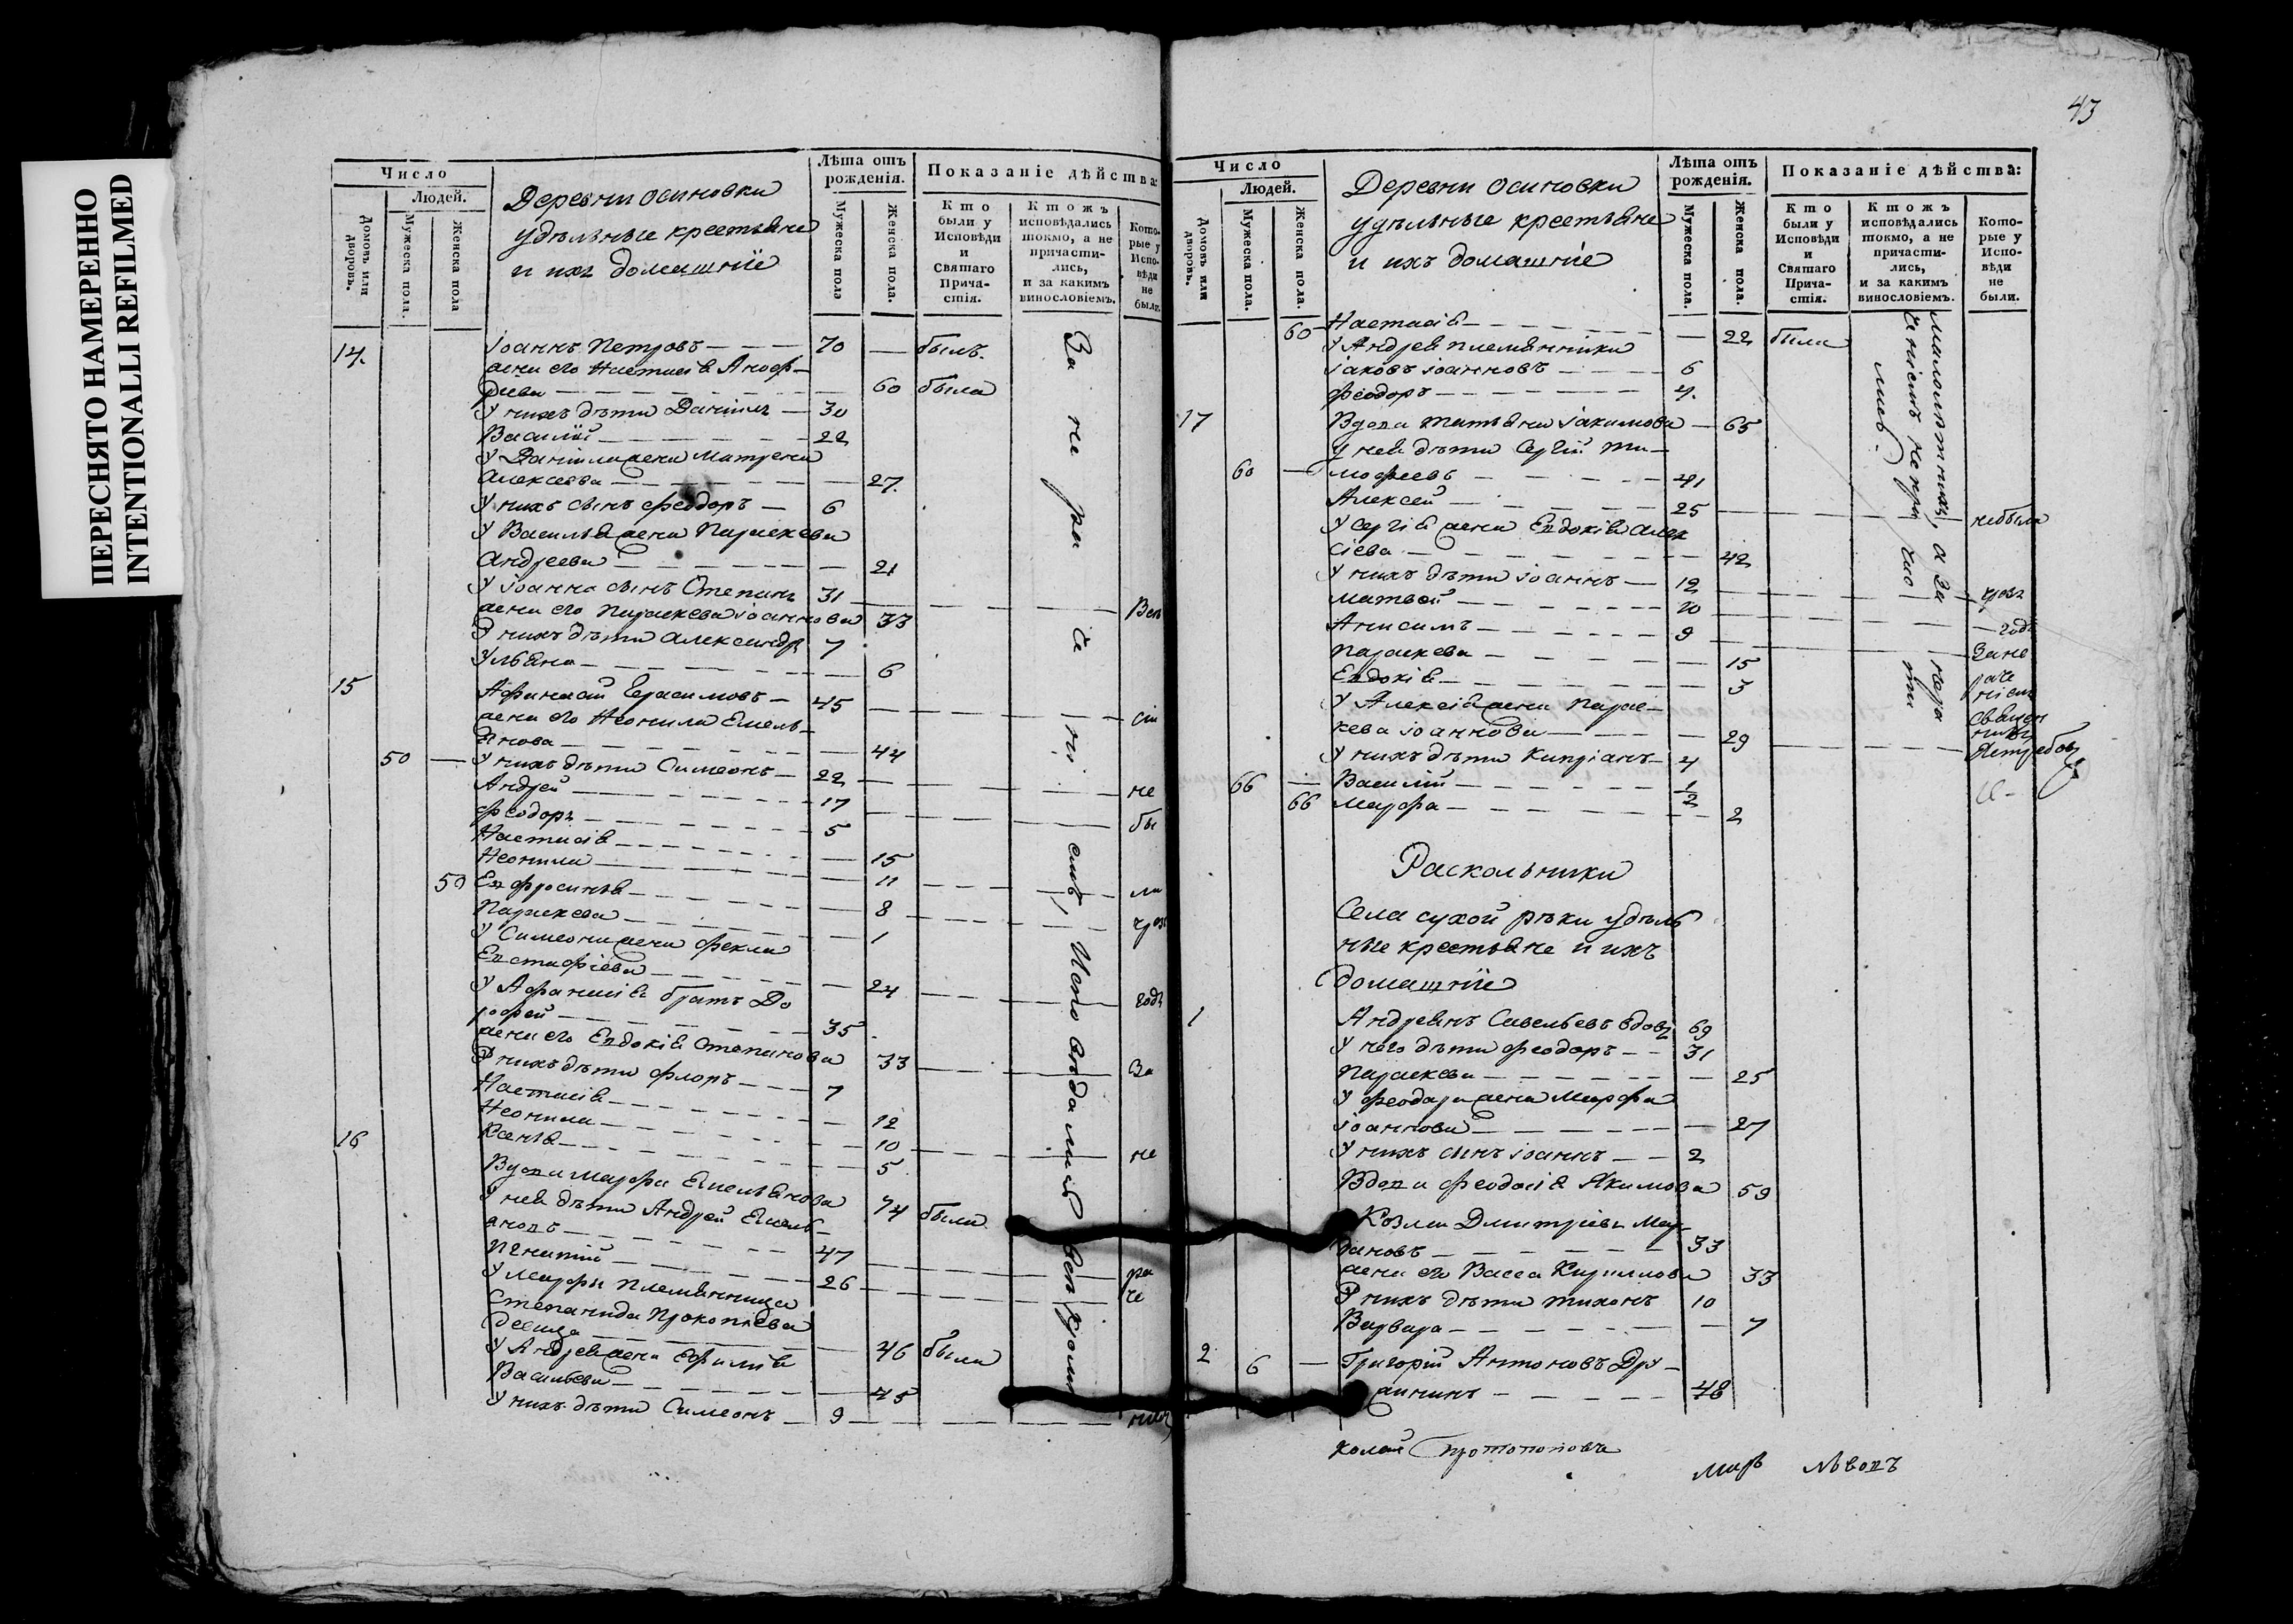 ПЕРЕСНЯТО НАМЕРЕННО
INTENTIONALLI REFILMED
Число
Людей.
Домовъ или дворовъ.
Мужеска пола.
Женска пола
Деревни осиновки
удѣльные крестьяне
и ихъ домашніе
Лѣта отъ рожденія.
Мужеска пола
Женска пола.
Показаніе дѣйства:
Кто были у Исповѣди и Святаго Причастія.
Ктожъ исповѣдались токмо, а не причастились, и за какимъ винословіемъ.
Которые у Исповѣди не были.
14. іоаннъ Петровъ 70 былъ.
жена его Настасія Аноф-
риева 60 была
У нихъ дѣти Даніилъ 30
Василій 22
У Даніила жена Матрена
Алексѣева 27.
У нихъ сынъ феодоръ 6
У Василья жена Параскева
Андреева 21
У іоанна сынъ Степанъ 31
жена его Параскева іоаннова 33
У нихъ дѣти Александръ 7
Ульяна 6
15 Афанасій Герасимовъ 45
жена его Неонила Емель-
янова 44
50 У нихъ дѣти Симеонъ 22
Андрей 17
феодоръ 5
Настасія 15
Неонила 11
50 Евфросинья 8
Параскева 1
У Симеона жена фекла
Евстафіева 24
У Афанасія братъ До
рофей 35
жена его Евдокія Степанова 33
У нихъ дѣти флоръ 7
Настасія 12
Неонила 10
Ксенья 5
16 Вдова марфа Емельянова 74 была
У нея дѣти Андрей Емель-
яновъ 47
Игнатій 26
У марфы племянница
Степанида Прокопіева
девица 46 была
У Андрея жена Ефимія
Васильева 45
У нихъ дѣти Симеонъ 9
За не ра че ні емъ, Исповѣдались
43
Число
Людей.
Домовъ или дворовъ.
Мужеска пола.
Женска пола.
Деревни осиновки
удѣльные крестьяне
и ихъ домашніе
Лѣта отъ рожденія.
Мужеска пола.
Женска пола.
Показаніе дѣйства:
Кто были у Исповѣди и Святаго Причастія.
Ктожъ исповѣдались токмо, а не причастились, и за какимъ винословіемъ.
Которые у Исповѣди не были.
60 Настасія 22 была
У Андрея племянники
іаковъ іоанновъ 6
феодоръ 4.
17 Вдова татьяна іакимова 65
У нея дѣти Сергій ти-
60 мофеевъ 41
Алексей 25 небыли
У Сергія жена Евдокія Алек
сіева 42
У нихъ дѣти іоаннъ 12
матвей 10
Анисимъ 9
Параскева 15
Евдокія 3
У Алексія жена Парас-
кева іоаннова 29
У нихъ дѣти Кипріанъ 4
66 Василій 1/2
66 марфа 2
Раскольники
Села сухой рѣки удѣль
ные крестьяне и ихъ
домашніе
1 Андреянъ Савельевъ вдовъ 69
У него дѣти феодоръ 31
Параскева 25
У феодора жена Марфа
іоаннова 27
У нихъ сынъ іоаннъ 2
Вдова феодосія Якимова 59
Козма Дмитріевъ Мар-
33
жена его Васса Кирилова 33
У нихъ дѣти тихонъ 10
Варвара 7
2 6 Григорій Антоновъ Дру-
жининъ 48
колай Протопоповъ